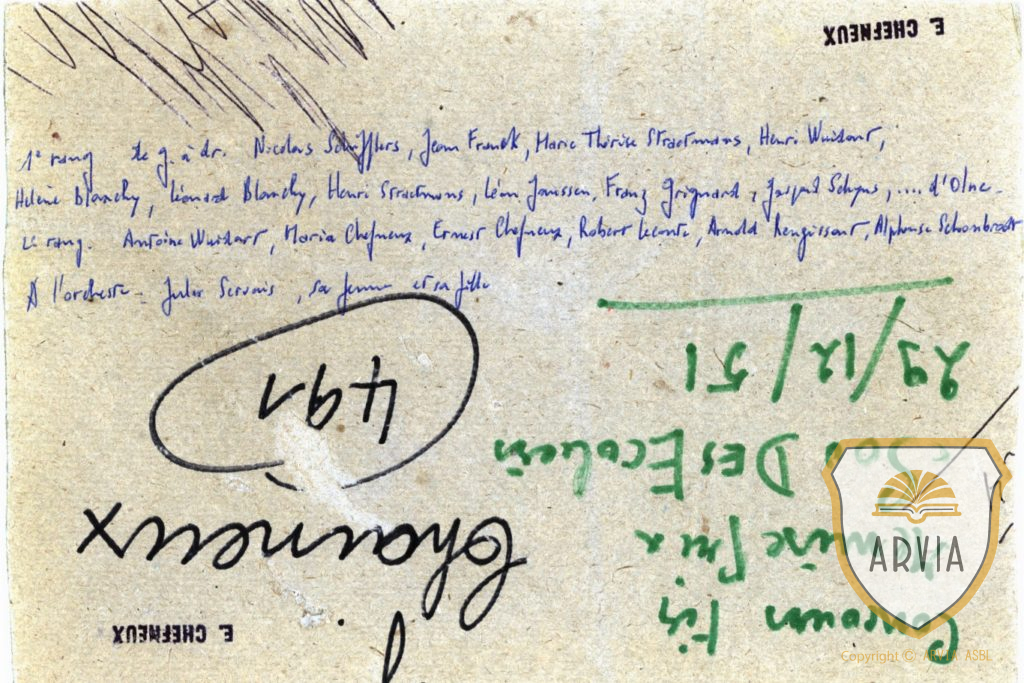 E. CHEFNEUX
1e rang de g. à dr. Nicolas Schifflers, Jean Franck, Marie Thérèse Straetmans, Henri Wuidart,
Hélène Blanchy, Léonard Blanchy, Henri Straetmans, Léon Janssen, Franz Grignard, Gaspard Schyns, .... d'Olne.
2e rang. Antoine Wuidart, Maria Chefneux, Ernest Chefneux, Robert Leconte, Arnold Rengissart, Alphonse Schonbrodt
A l'orchestre - Jules Servais, sa femme et sa fille
Concours
DES
29/12/51
491
Chaineux
E. CHEFNEUX
ARVIA
Copyright © ARVIA ASBL